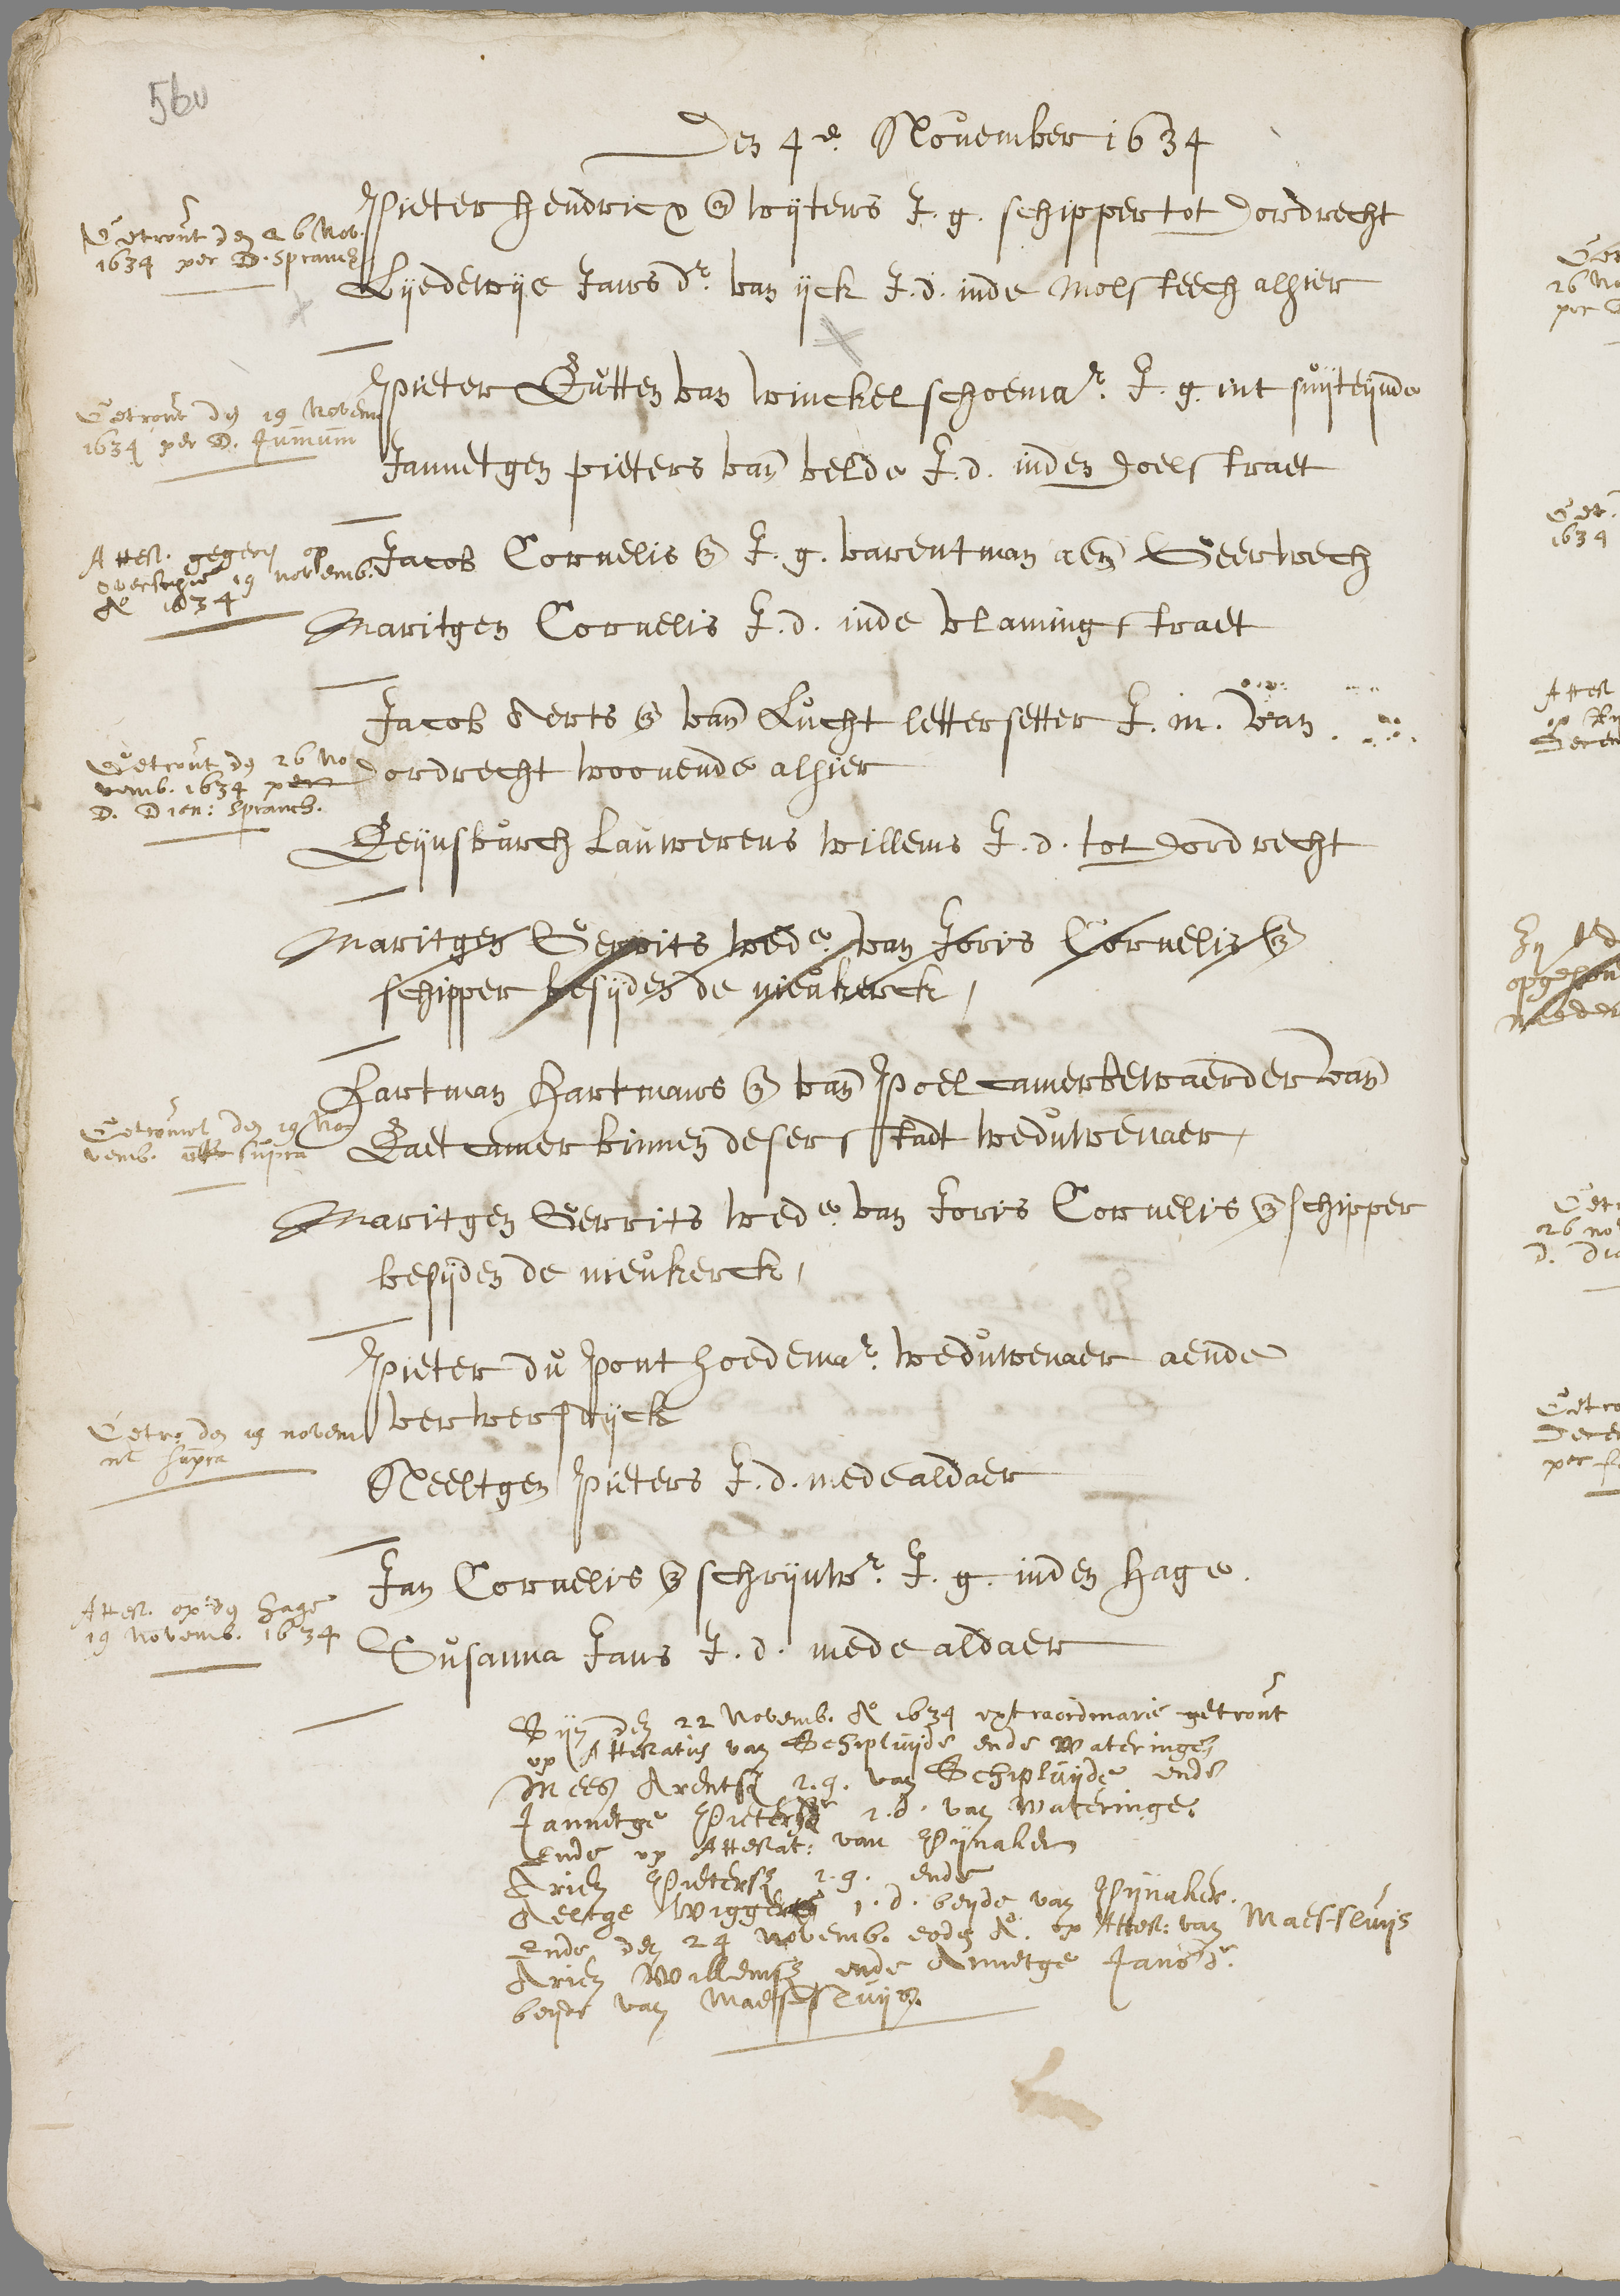 56v
Den 4e. November 1634
Getrout den 26 Nov.
1634 per D. Spranch
Pieter hendricx wijtens J. g. schipper tot Dordrecht
Lijedewije Jans dr. van ijck J. d. inde Molsteech alhier
Getrout den 19 Novem
1634 per D. Junium
Pieter Rutten van winckel schoemar. J. g. int suijteijnde
Jannetgen pieters van velde J. d. inden Doelstraet
Attest. gegeven op
19 novemb.
Ao 1634
Jacob Cornelisz J. g. varentman aen Geerwech
Maritgen Cornelis J. d. inde vlamingstraet
Getrout den 26 No
vemb. 1634 per
D. Dion: Spranch.
Jacob Aertsz van Lucht lettersetter J. m. van
Dordrecht woonende alhier
Reijnsburch Lauwerens willems J. d. tot Dordrecht
Maritgen Gerrits wede. van Joris Cornelisz
schipper besijden de nieukerck,
Getrout den 19 No
vemb. ut supra
Hartman Hartmansz van Poel camerbewaerder van
Raetcamer binnen deser stadt weduwenaer,
Maritgen Gerrits wede. van Joris Cornelisz schipper
besijden de nieukerck,
Getro den 19 novem
ut supra
Pieter du Pont hoedemar. weduwenaer aende
verwersdijck
Neeltgen Pieters J. d. mede aldaer
Attest. op den Hage
19 Novemb. 1634
Jan Cornelisz schrijnwr. J. g. inden Hage.
Susanna Jans J. d. mede aldaer
Sijn den 22 Novemb. Ao 1634 extraordinarie getrout
op Attestatie van Schipluijde ende Wateringen
Mees Arentsz J. g. van Schipluijde ende
Jannetge Pieters J. d. van Wateringe.
Ende op Attestat: van Pijnaker
Arien Pietersz J. g. ende
Aeltge Wiggers J. d. beijde van Pijnaker.
Ende den 24 Novemb. eodem Ao. op Attest: van Maes-sluijs
Arien Willemsz ende Annetge Jansdr.
beijde van Maes-sluijs.